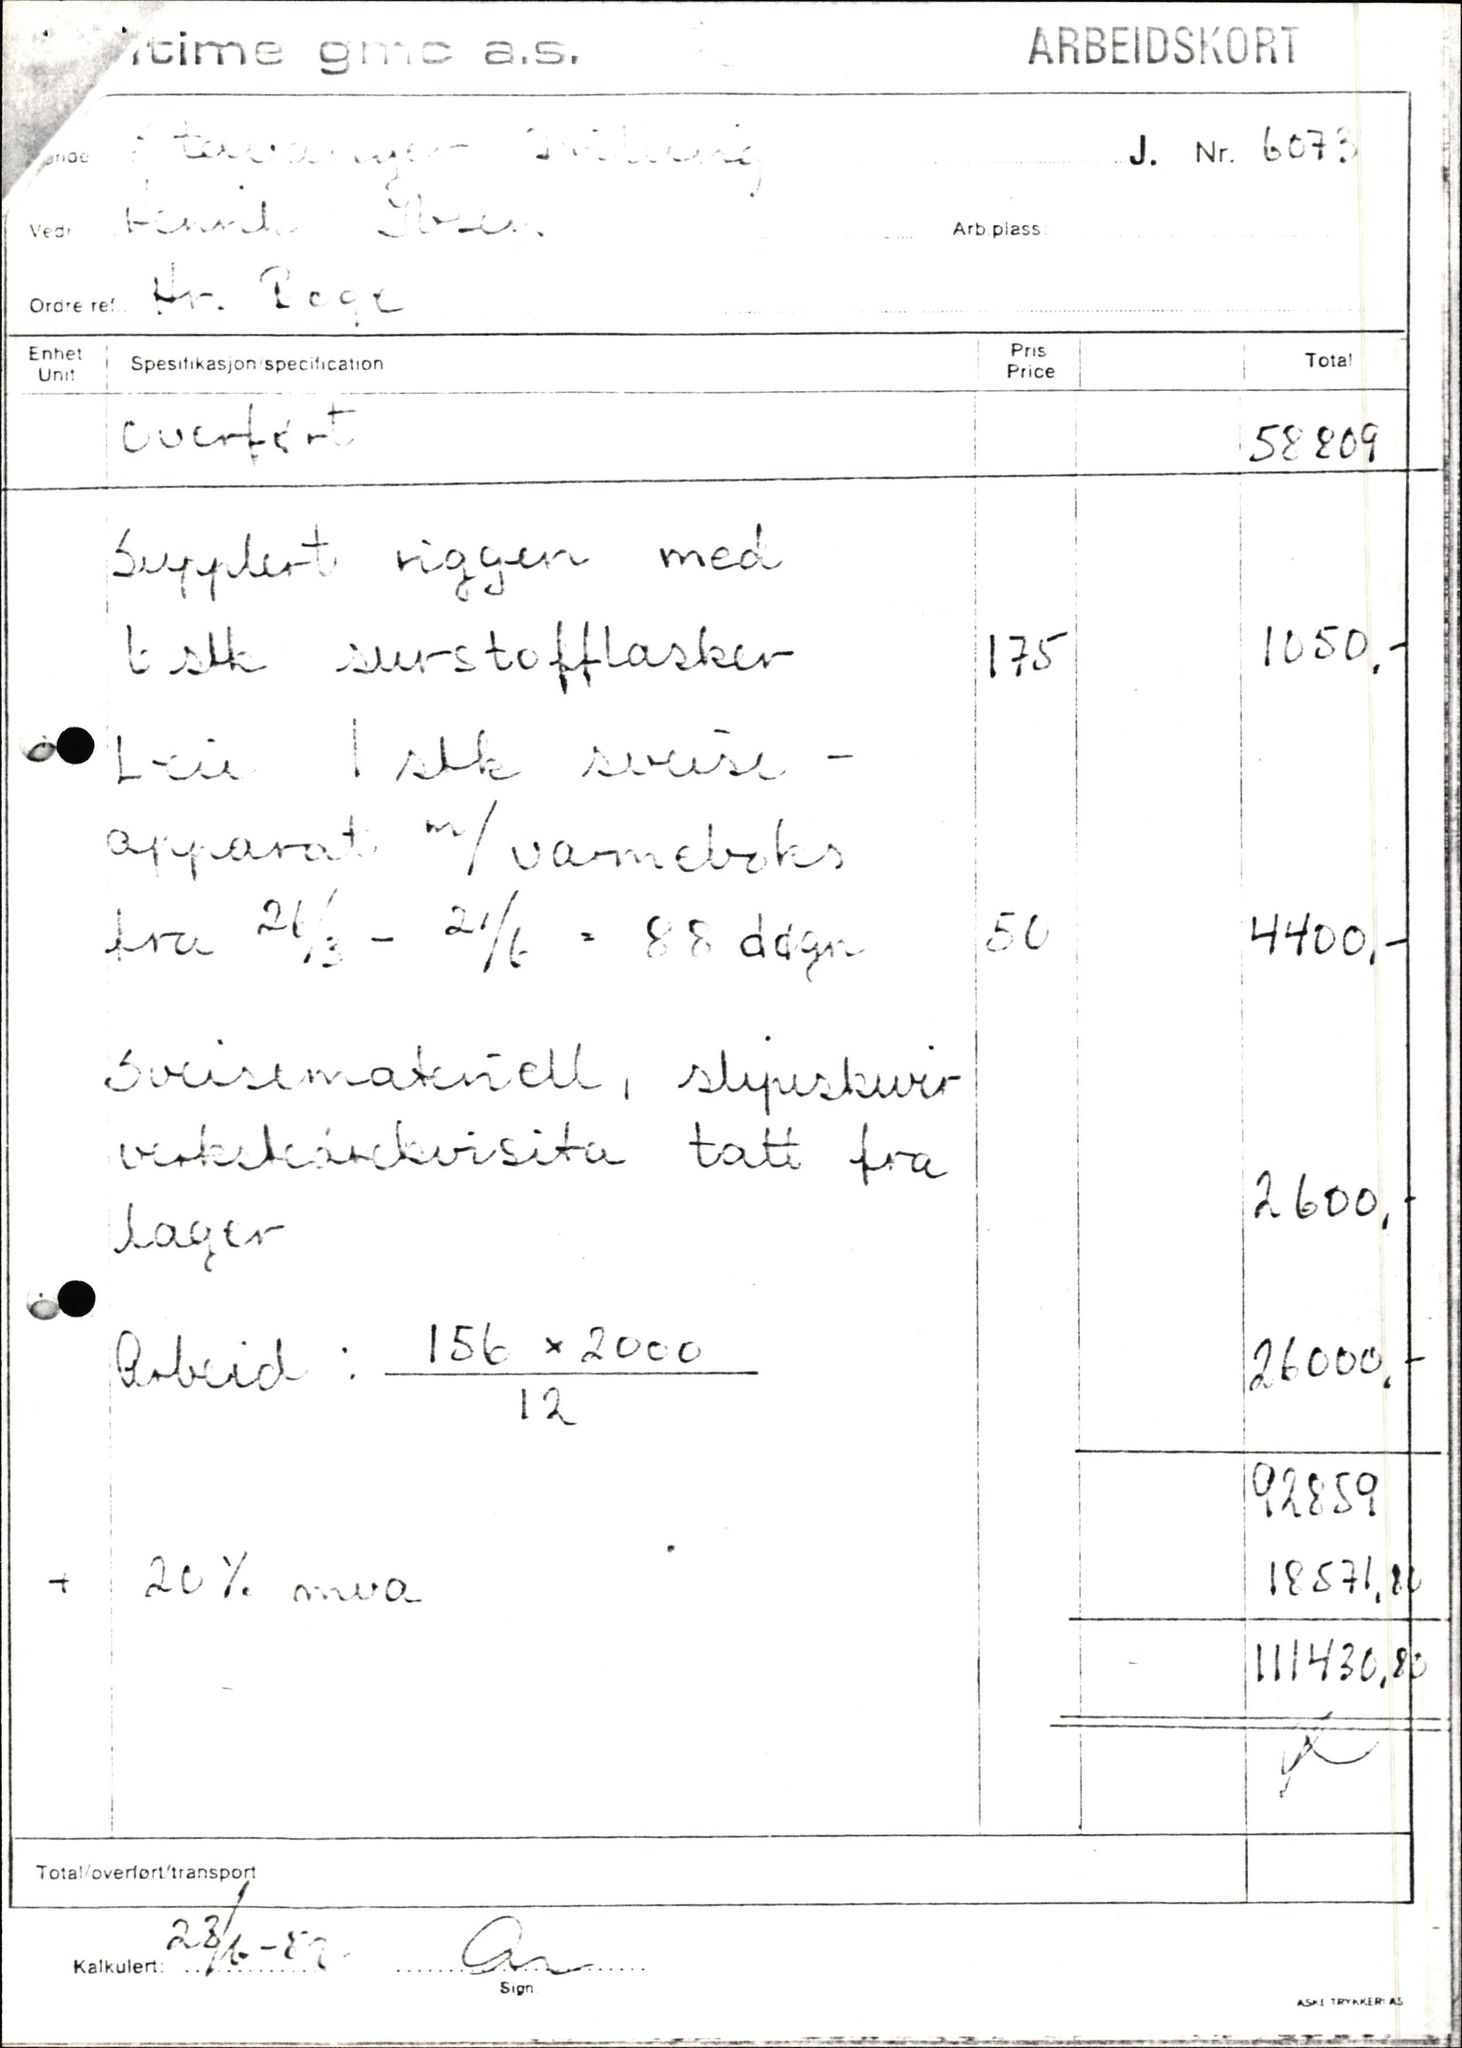 itime gmc a.s. ARBEIDSKORT
Stavanger Drilling J. Nr. 6073
Vedr Henrik Ibsen Arb.plass:
Ordre ref.: Hr. Page
Enhet Unit Spesifikasjon/specification Pris Price Total
overført 58809
Supplert riggen med
6 stk surstofflasker 175 1050,-
Leie 1 stk sveise-
apparat m/varmeboks
fra 26/3 - 21/6 = 88 døgn 50 4400,-
Sveisemateriell, slipeskiver
verkstedrekvisita tatt fra
lager 2600,-
Arbeid: 156 x 2000 26000,-
12
92859
+ 20% mva 18571,80
111430,80
Total/overført/transport
Kalkulert: 23/6-82
Sign.
ASKE TRYKKERI AS